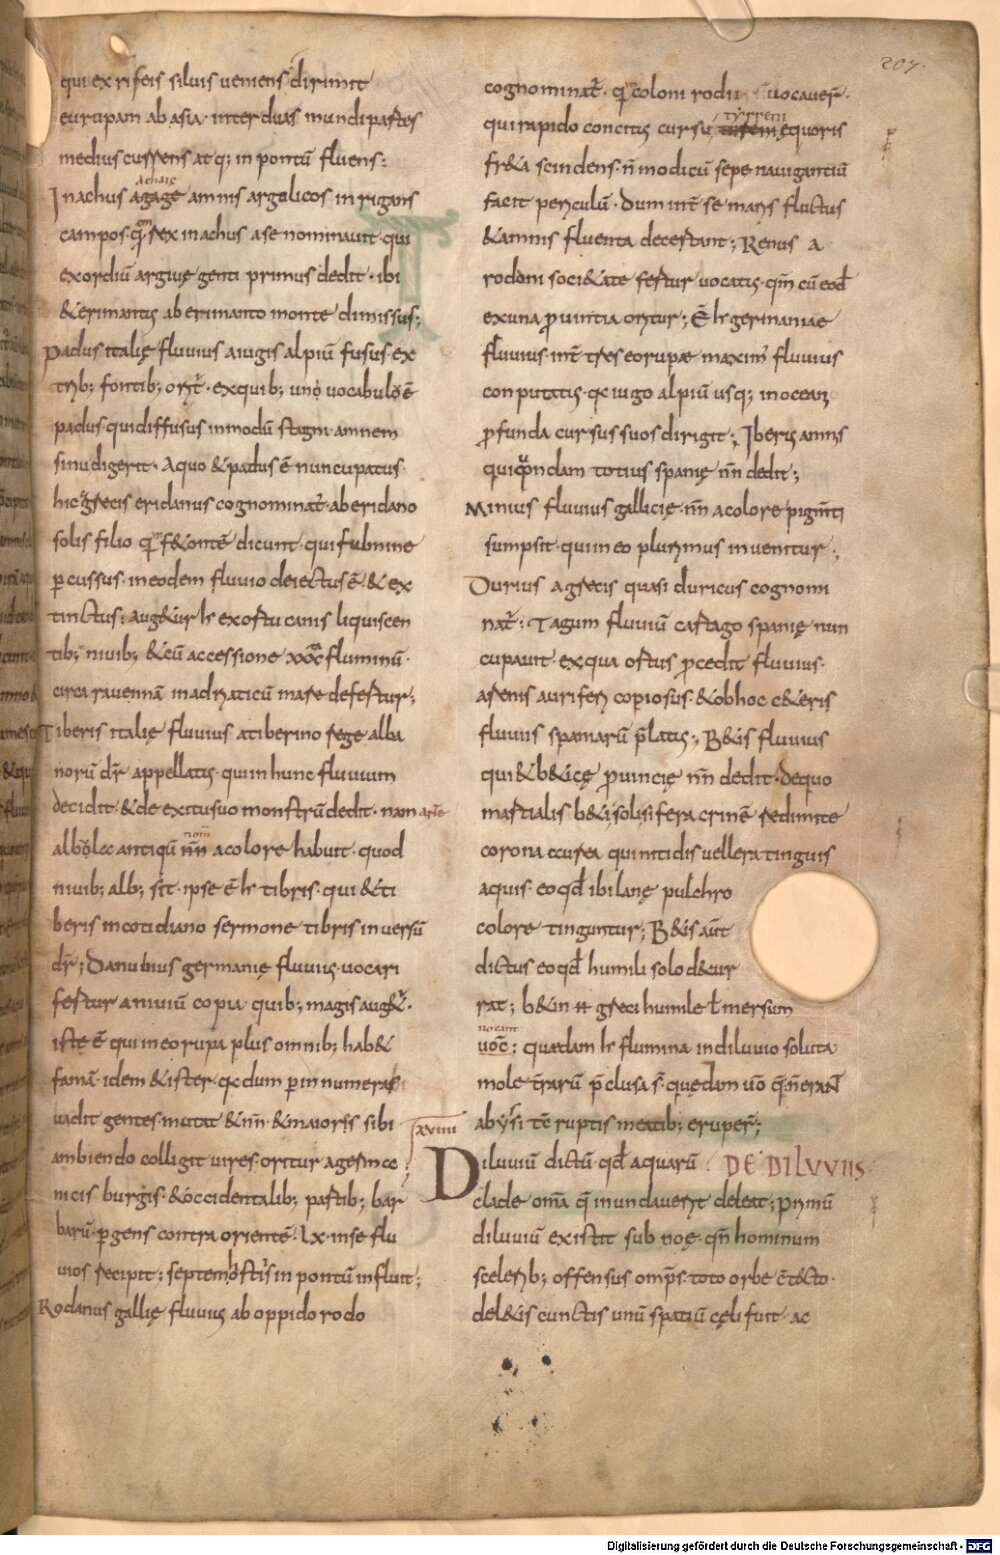 204.
qui ex rifeis silvis veniens dirimit
europam ab asia· inter duas mundi partes
medius currens atq; in pontū fluens:
achaie
Inachus agage amnis argolicos inrigans
campos· quē rex inachus a se nominavit· qui
exordiū argivę genti primus dedit· ibi
&erimantus ab erimanto monte dimissus:
Padus italię fluvius a iugis alpiū fusus ex
trib; fontib; orit̄· ex quib; uno vocabulo ē
padus qui diffusus in modū stagni amnem
sinu digerit· A quo & padus ē nuncupatus·
hic grecis eridanus cognominat̄· ab eridano
solis filio quē f&ontē dicunt· qui fulmine
ꝑcussus· in eodem fluvio deiectus ē & ex
tinctus: aug&ur hr̄ exortu canis liquiscen
tib; nivib; &cū accessione xxx fluminū·
circa ravennā in adriaticū mare defertur;
Tiberis italię fluvius a tiberino rege alba
norū dr̄ appellatus· qui in hunc fluvium
decidit· & de exitu suo monstrū dedit· nam
antiqū nn̄ a colore habuit· quod
nivib; alb; sit· ipse ē hr̄ tibris· qui & ti
beris in cotidiano sermone tibris in versū
dr̄; Danuvius germanię fluvius· vocari
fertur a niviū copia· quib; magis aug&̄·
iste ē qui in eorupa plus omnib; hab&
famā· idem & ister· qa dum ꝑ innumeras
vadit gentes· mutat & nn̄· & maioris sibi
ambiendo colligit vires· oritur a germ
nicis burgis· & occidentalib; partib; bar
barū· ꝑgens contra orientē· lx· in se flu
vios recipit: septem ostiis in pontū influit;
Rodanus gallię fluvius ab oppido rodo
cognominat̄· qđ coloni rodii vocaver̄·
tyrreni
qui rapido concitus cursu ęquoris
fr&a scindens· n̄ modicū sepe navigantiū
facit periculū· Dum int̄ se maris fluctus
& amnis fluenta decertant; Renus a
rodani soci&ate fertur vocatus· qm̄ cū eođ
ex una ꝓvintia oritur; Ē hr̄ germaniae
fluvius int̄ tres eorupae maximꝰ fluvius
conputatus· qa iugo alpiū usq; in oceani
ꝓfunda cursus suos dirigit; Iberus amnis
qui quondam totius spanię nn̄ dedit;
Minius fluvius gallicię· nn̄ a colore pigmti
sumpsit· qui in eo plurimus invenitur;
Durius a grecis quasi duricus cognomi
nat̄: Tagum fluviū cartago spanię nun
cupavit· ex qua ortus ꝓcedit fluvius·
arenis auriferis copiosus· & ob hoc c&eris
fluviis spaniarū p̄latus; B&is fluvius
qui & b&icę ꝓvincię nn̄ dedit· de quo
martialis b&is olisifera crinē redimite
corona aurea qui nitidis vellera tinguis
aquis· eo qđ ibi lanę pulchro
colore tinguntur; B&is aūt
dictus eo qđ humili solo decur
rat; b&in ṉ greci humile ł mersum
vocant
voc̄; quaedam hr̄ flumina in diluvio soluta
mole terrarū p̄clusa s̄ quędam vō
abyssi tē ruptis meatib; eruper̄;
xviii
DE DILVVIIS·
Diluviū dictū qđ aquarū
clade om̄a quę inundaverit deleat; Primū
diluviū existit sub noę· qn̄ hominum
sceleribꝰ; offensus omp̄s· toto orbe c̄tecto·
del&is cunctis unū spatiū cęli fuit· ac
Digitalisierung gefördert durch die Deutsche Forschungsgemeinschaft - DFG